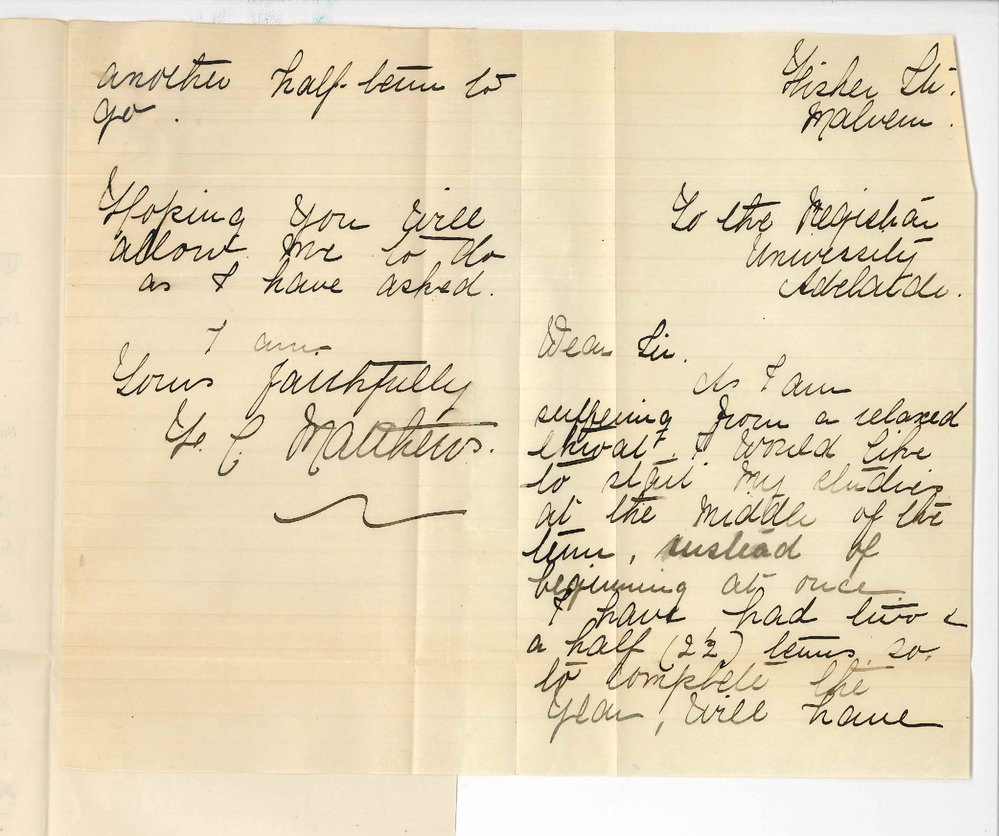 Fisher St.
Malvern.
To the Registrar
University
Adelaide.
Dear Sir.
As I am
suffering from a relaxed
throat, I would like
to start my studies
at the middle of the
term, instead of
beginning at once.
I have had two &
a half (2½) terms, so,
to complete the
year, will have
another half-term to
go.
Hoping you will
allow me to do
as I have asked.
I am
Yours faithfully
C. Matthews.